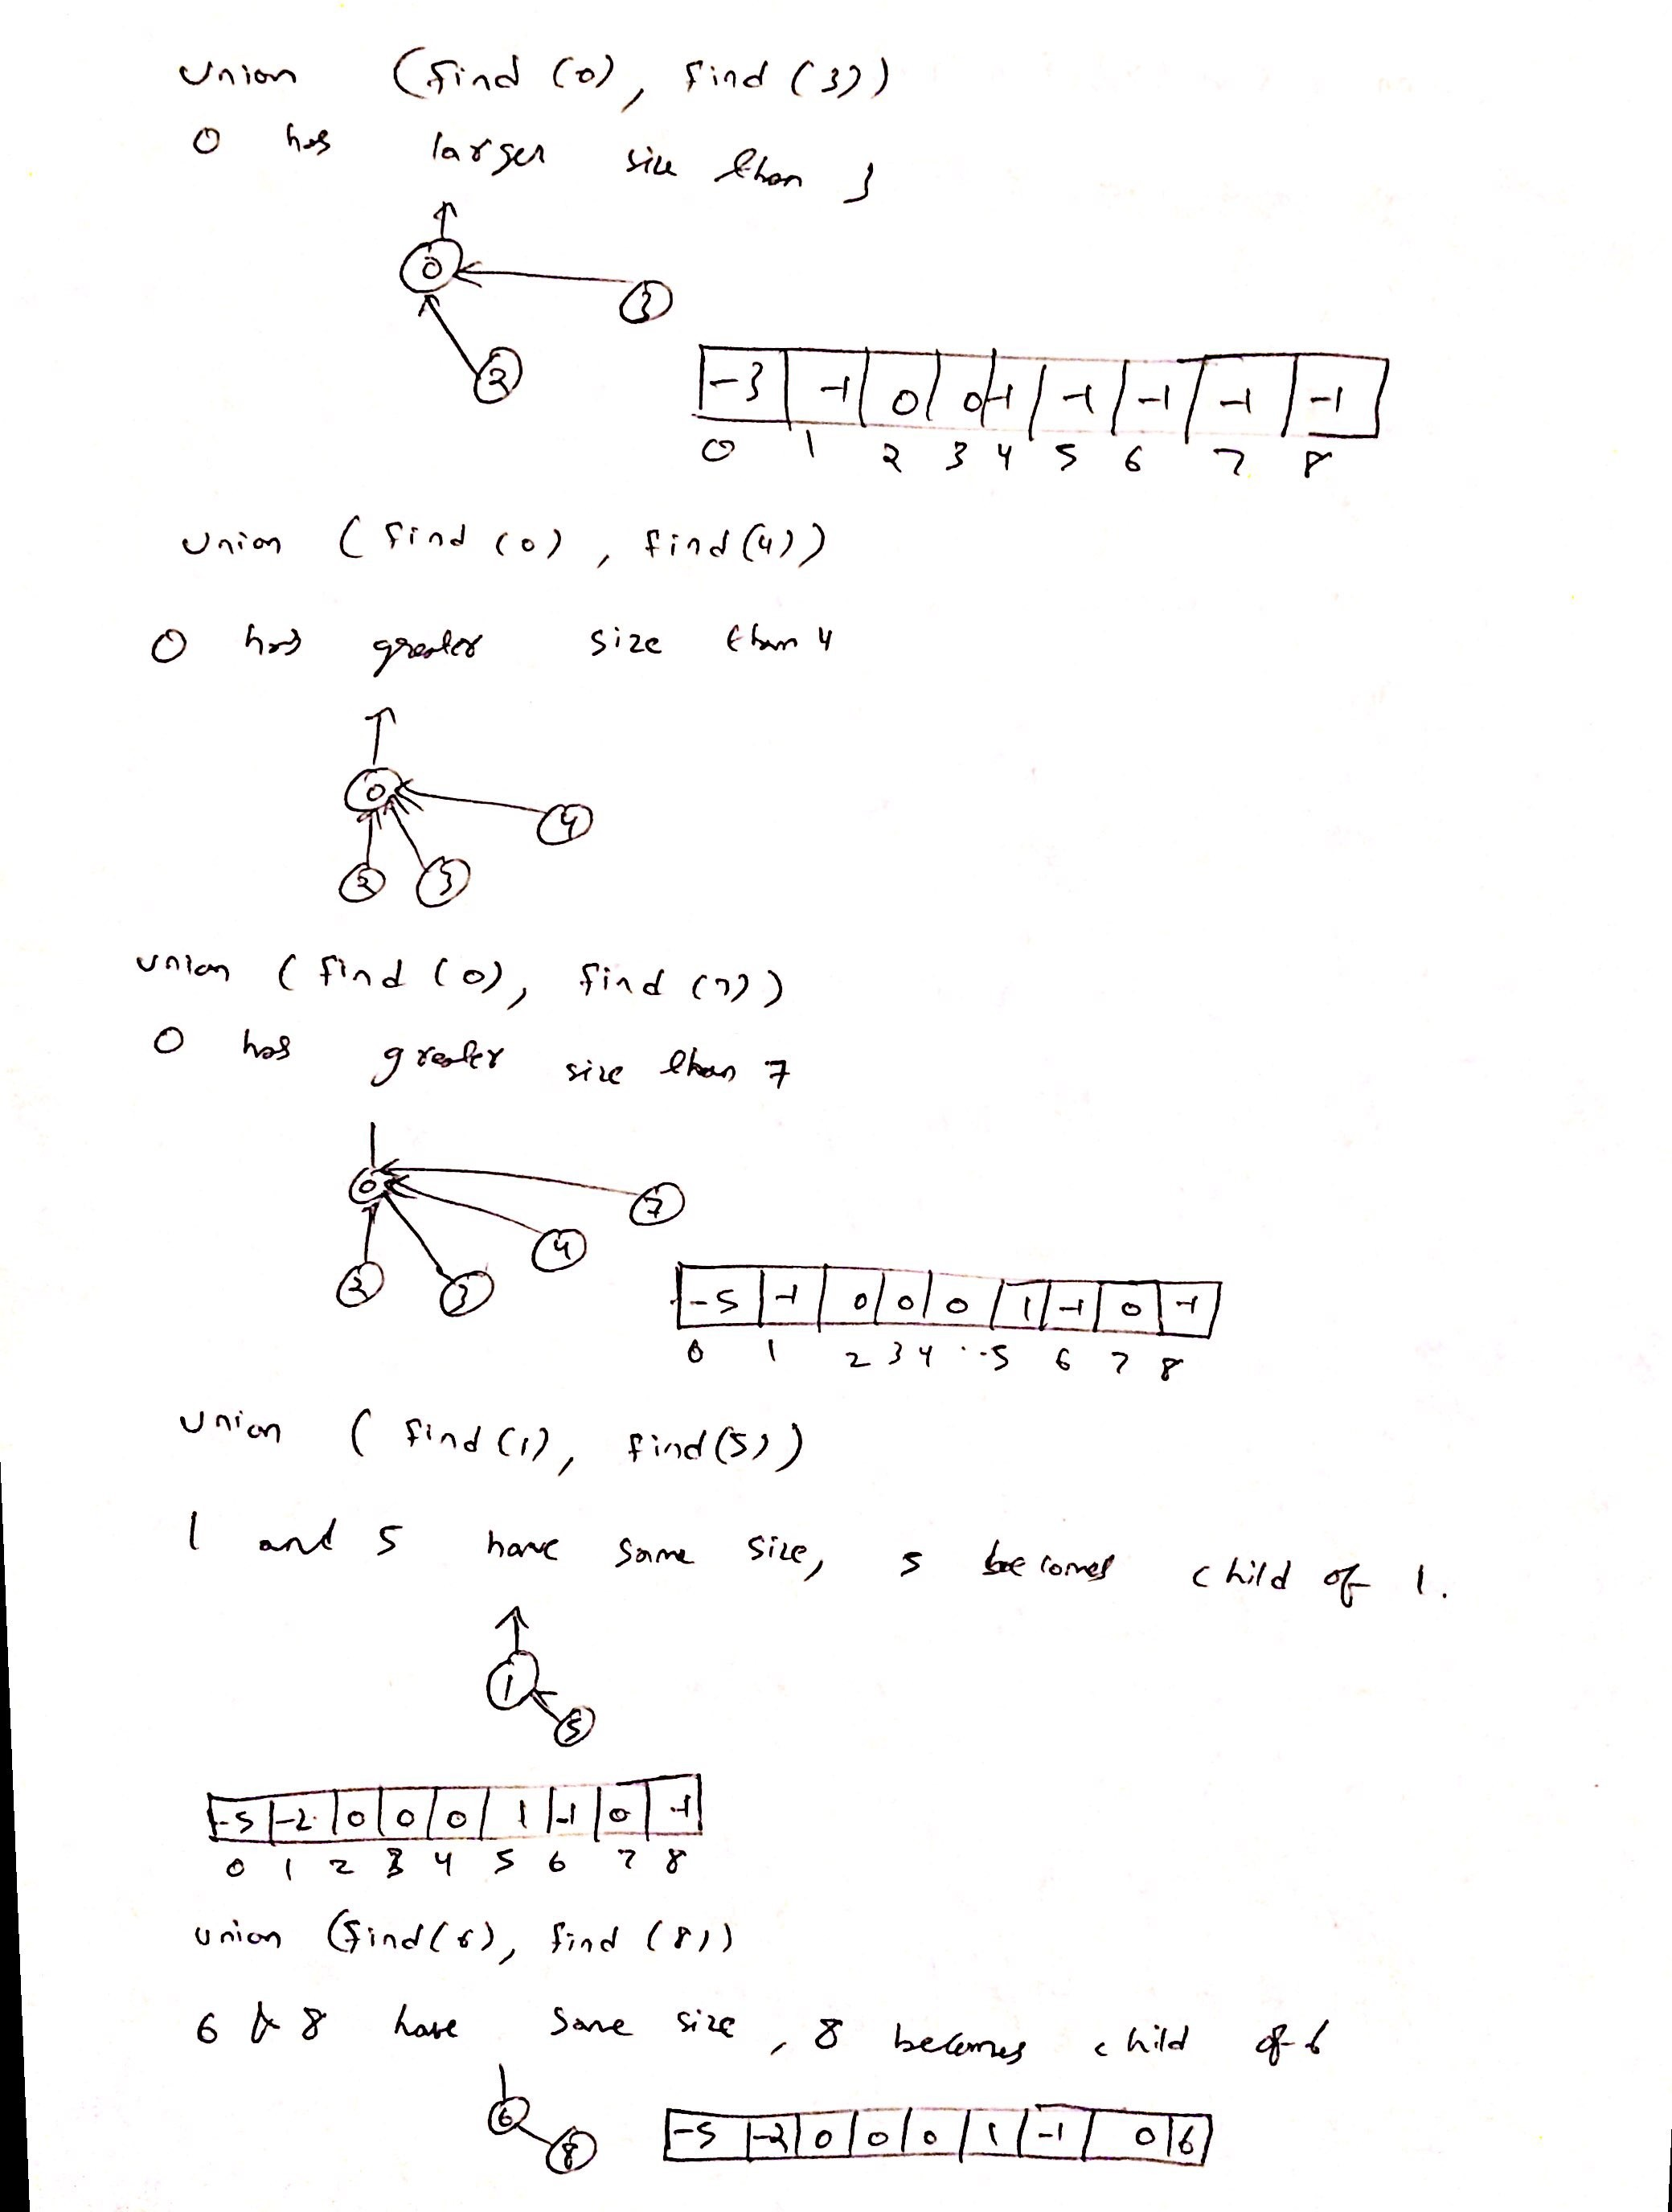 Union (find (0), find (3))
0 has larger size than 3
0
3
2
-3 -1 0 0 -1 -1 -1 -1 -1
0 1 2 3 4 5 6 7 8
Union (find (0), find (4))
0 has greater size than 4
0
4
2 3
union (find (0), find (7))
0 has greater size than 7
0 7
4
2 3
-5 -1 0 0 0 1 -1 0 -1
0 1 2 3 4 5 6 7 8
Union (find (1), find (5))
1 and 5 have same size, 5 becomes child of 1.
1
5
-5 -2 0 0 0 1 -1 0 -1
0 1 2 3 4 5 6 7 8
union (find (6), find (8))
6 & 8 have same size, 8 becomes child of 6
6
8
-5 -2 0 0 0 1 -1 0 6